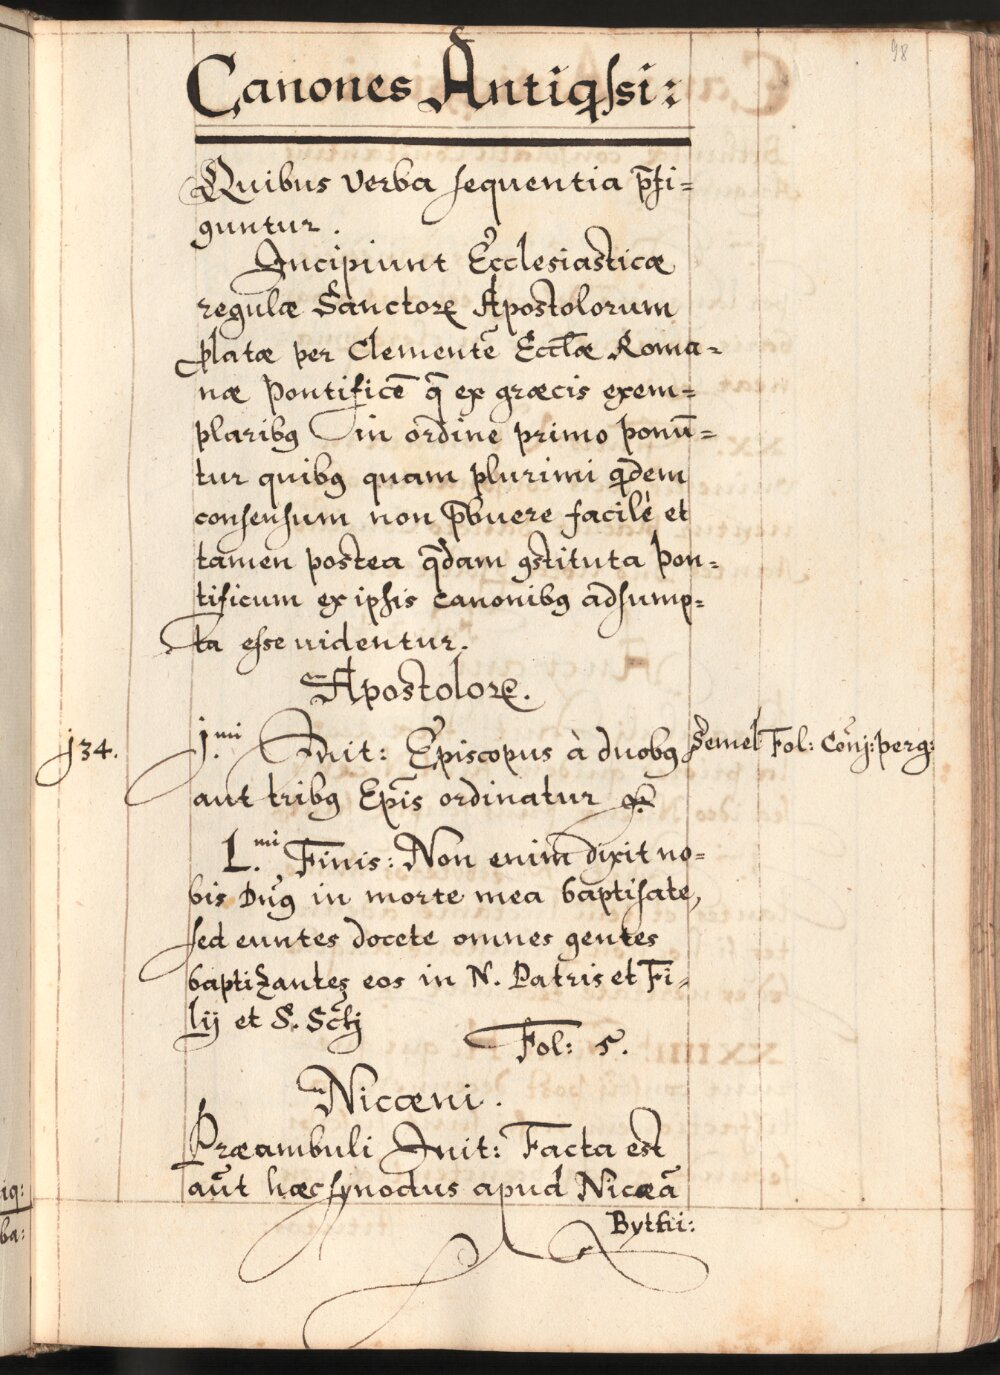 98
Canones Antiqssi:
Quibus verba sequentia p̄fi=
guntur.
Incipiunt Ecclesiasticæ
regulæ Sanctorꝝ Apostolorum
ꝓlatæ per Clementē Eccl̄æ Roma=
næ Pontificē q̄ ex græcis exem=
plaribꝰ in ordine primo ponū=
tur quibꝰ quam plurimi qdem
consensum non p̄buere facilè et
tamen postea q̄dam ꝯstituta Pon=
tificum ex ipsis canonibꝰ adsump=
ta esse uidentur.
Apostolorꝝ.
j34. j.mi Init: Episcopus à duobꝰ Semel Fol: Conj: perg:
aut tribꝰ Ep̄is ordinatur
L.mi Finis: Non enim dixit no=
bis Dn̄ꝰ in morte mea baptisate,
sed euntes docete omnes gentes
baptizantes eos in N. Patris et Fi=
lij et S. Sctj
Fol: 5.
Nicæni.
Præambuli Init: Facta est
aūt hæc synodus apud Nicæā
Bythi:
iq:
ba: